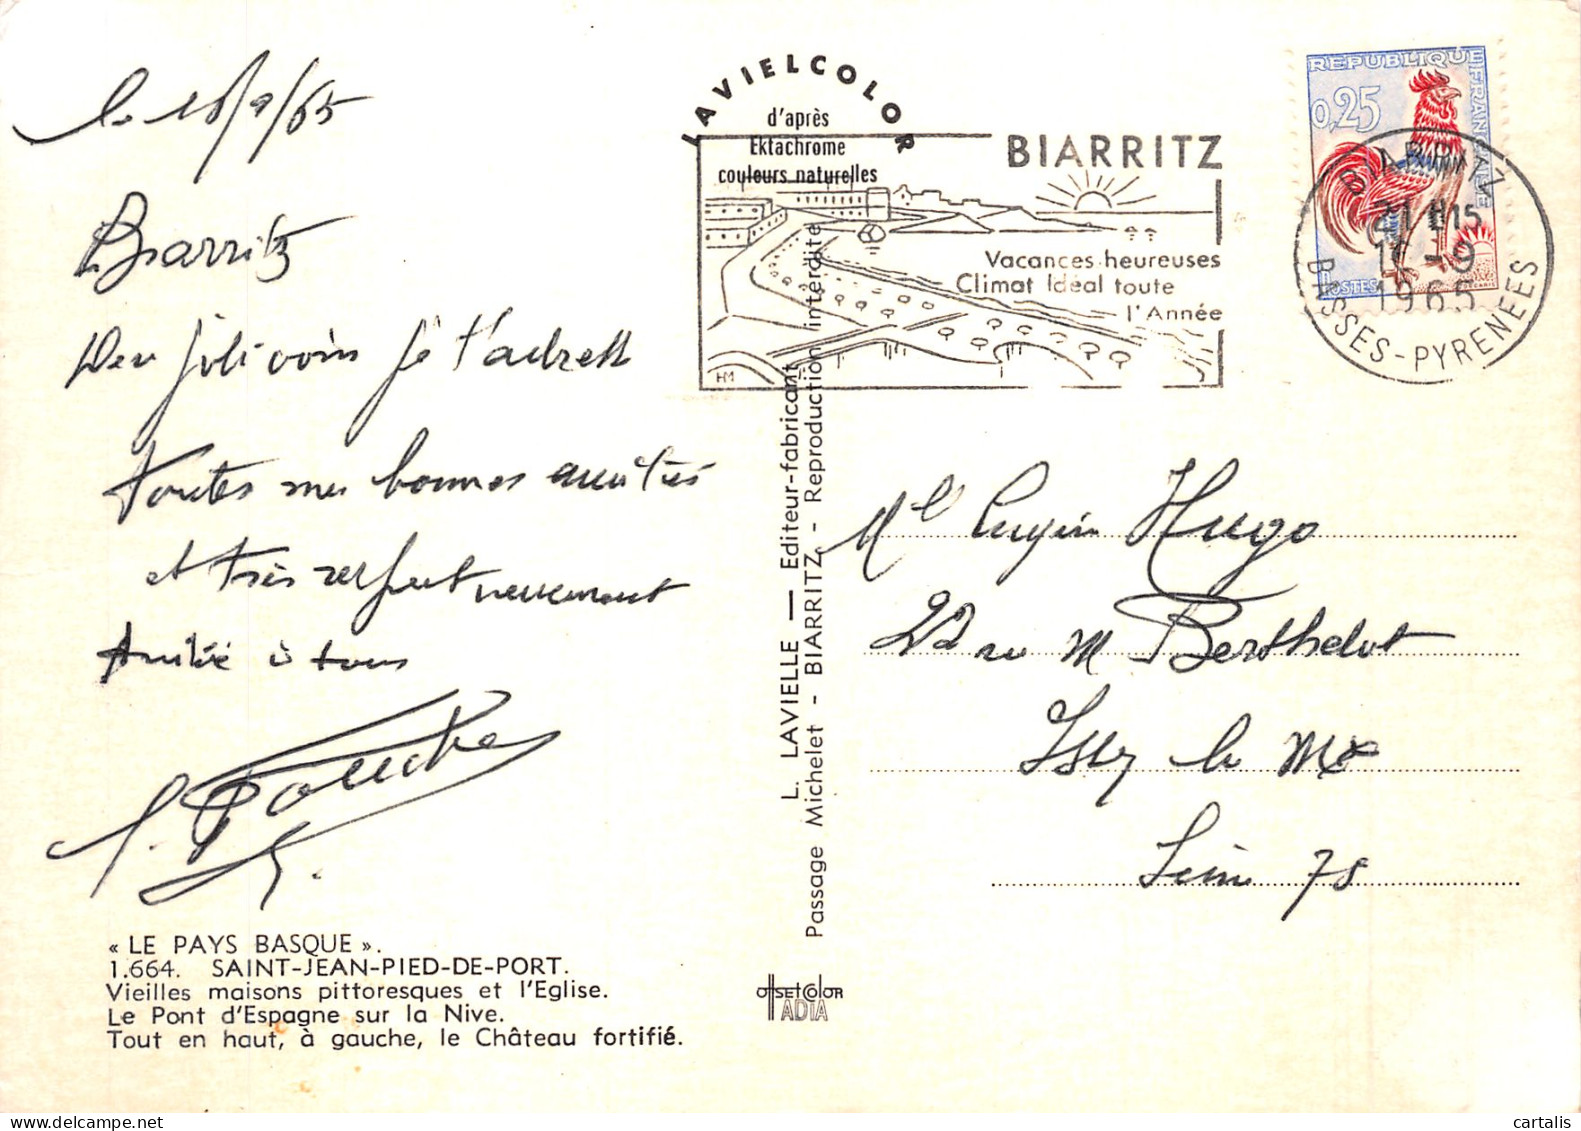 le 16/9/65
Biarritz
Du joli coin je t'adresse
toutes mes bonnes amitiés
et très respectueusement
Amitié à tous
« LE PAYS BASQUE ».
1.664. SAINT-JEAN-PIED-DE-PORT.
Vieilles maisons pittoresques et l'Eglise.
Le Pont d'Espagne sur la Nive.
Tout en haut, à gauche, le Château fortifié.
LAVIELCOLOR
d'après
Ektachrome
couleurs naturelles
BIARRITZ
Vacances heureuses
Climat Idéal toute
l'Année
HM
L. LAVIELLE — Editeur-fabricant
Passage Michelet - BIARRITZ - Reproduction interdite
OffSETCOLOR
ADIA
REPUBLIQUE FRANÇAISE
0,25
POSTES
BIARRITZ
21H15
16-9
1965
BASSES-PYRENEES
Ml Eugén Hugo
22 rue M Berthelot
Issy le Mx
Seine 75
cartalis